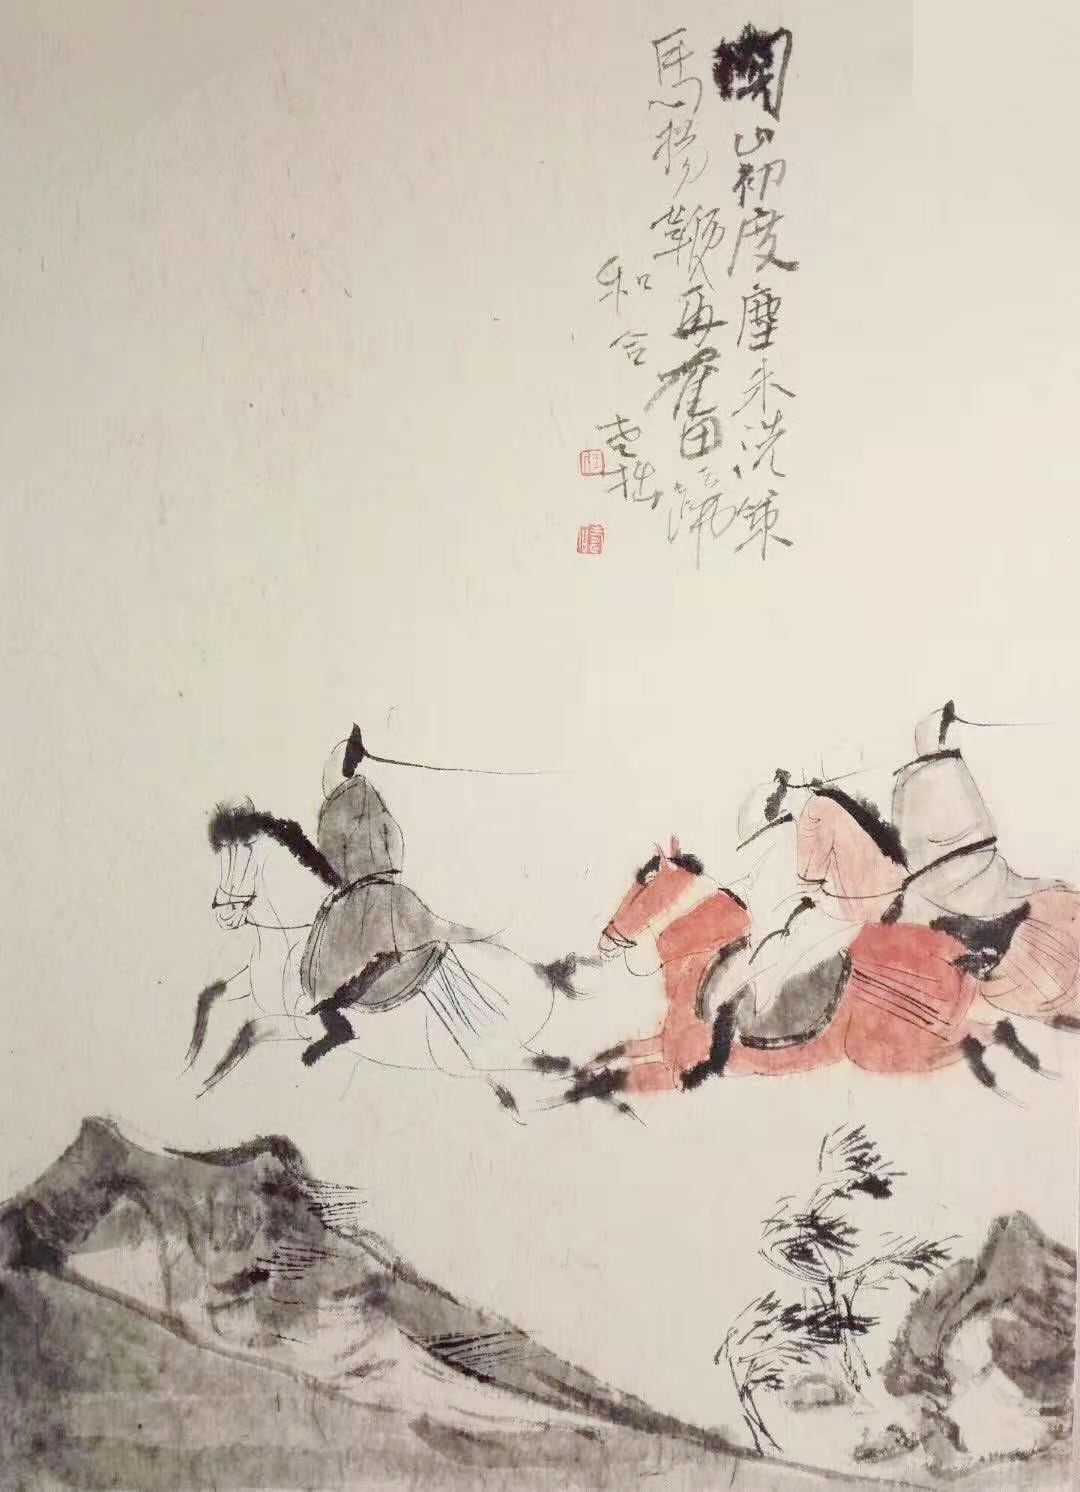 關山初度塵未洗策
馬揚鞭再奮蹄
和合 拙